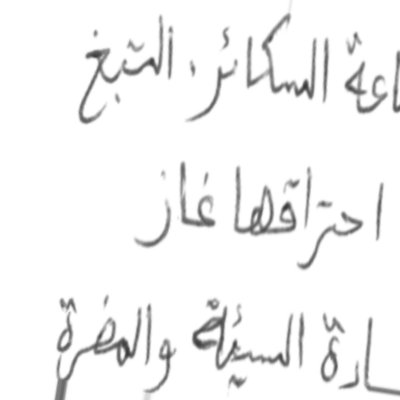 اعة السكائر، التبغ
احتراقها غاز
ـارة السيئة والمضرة